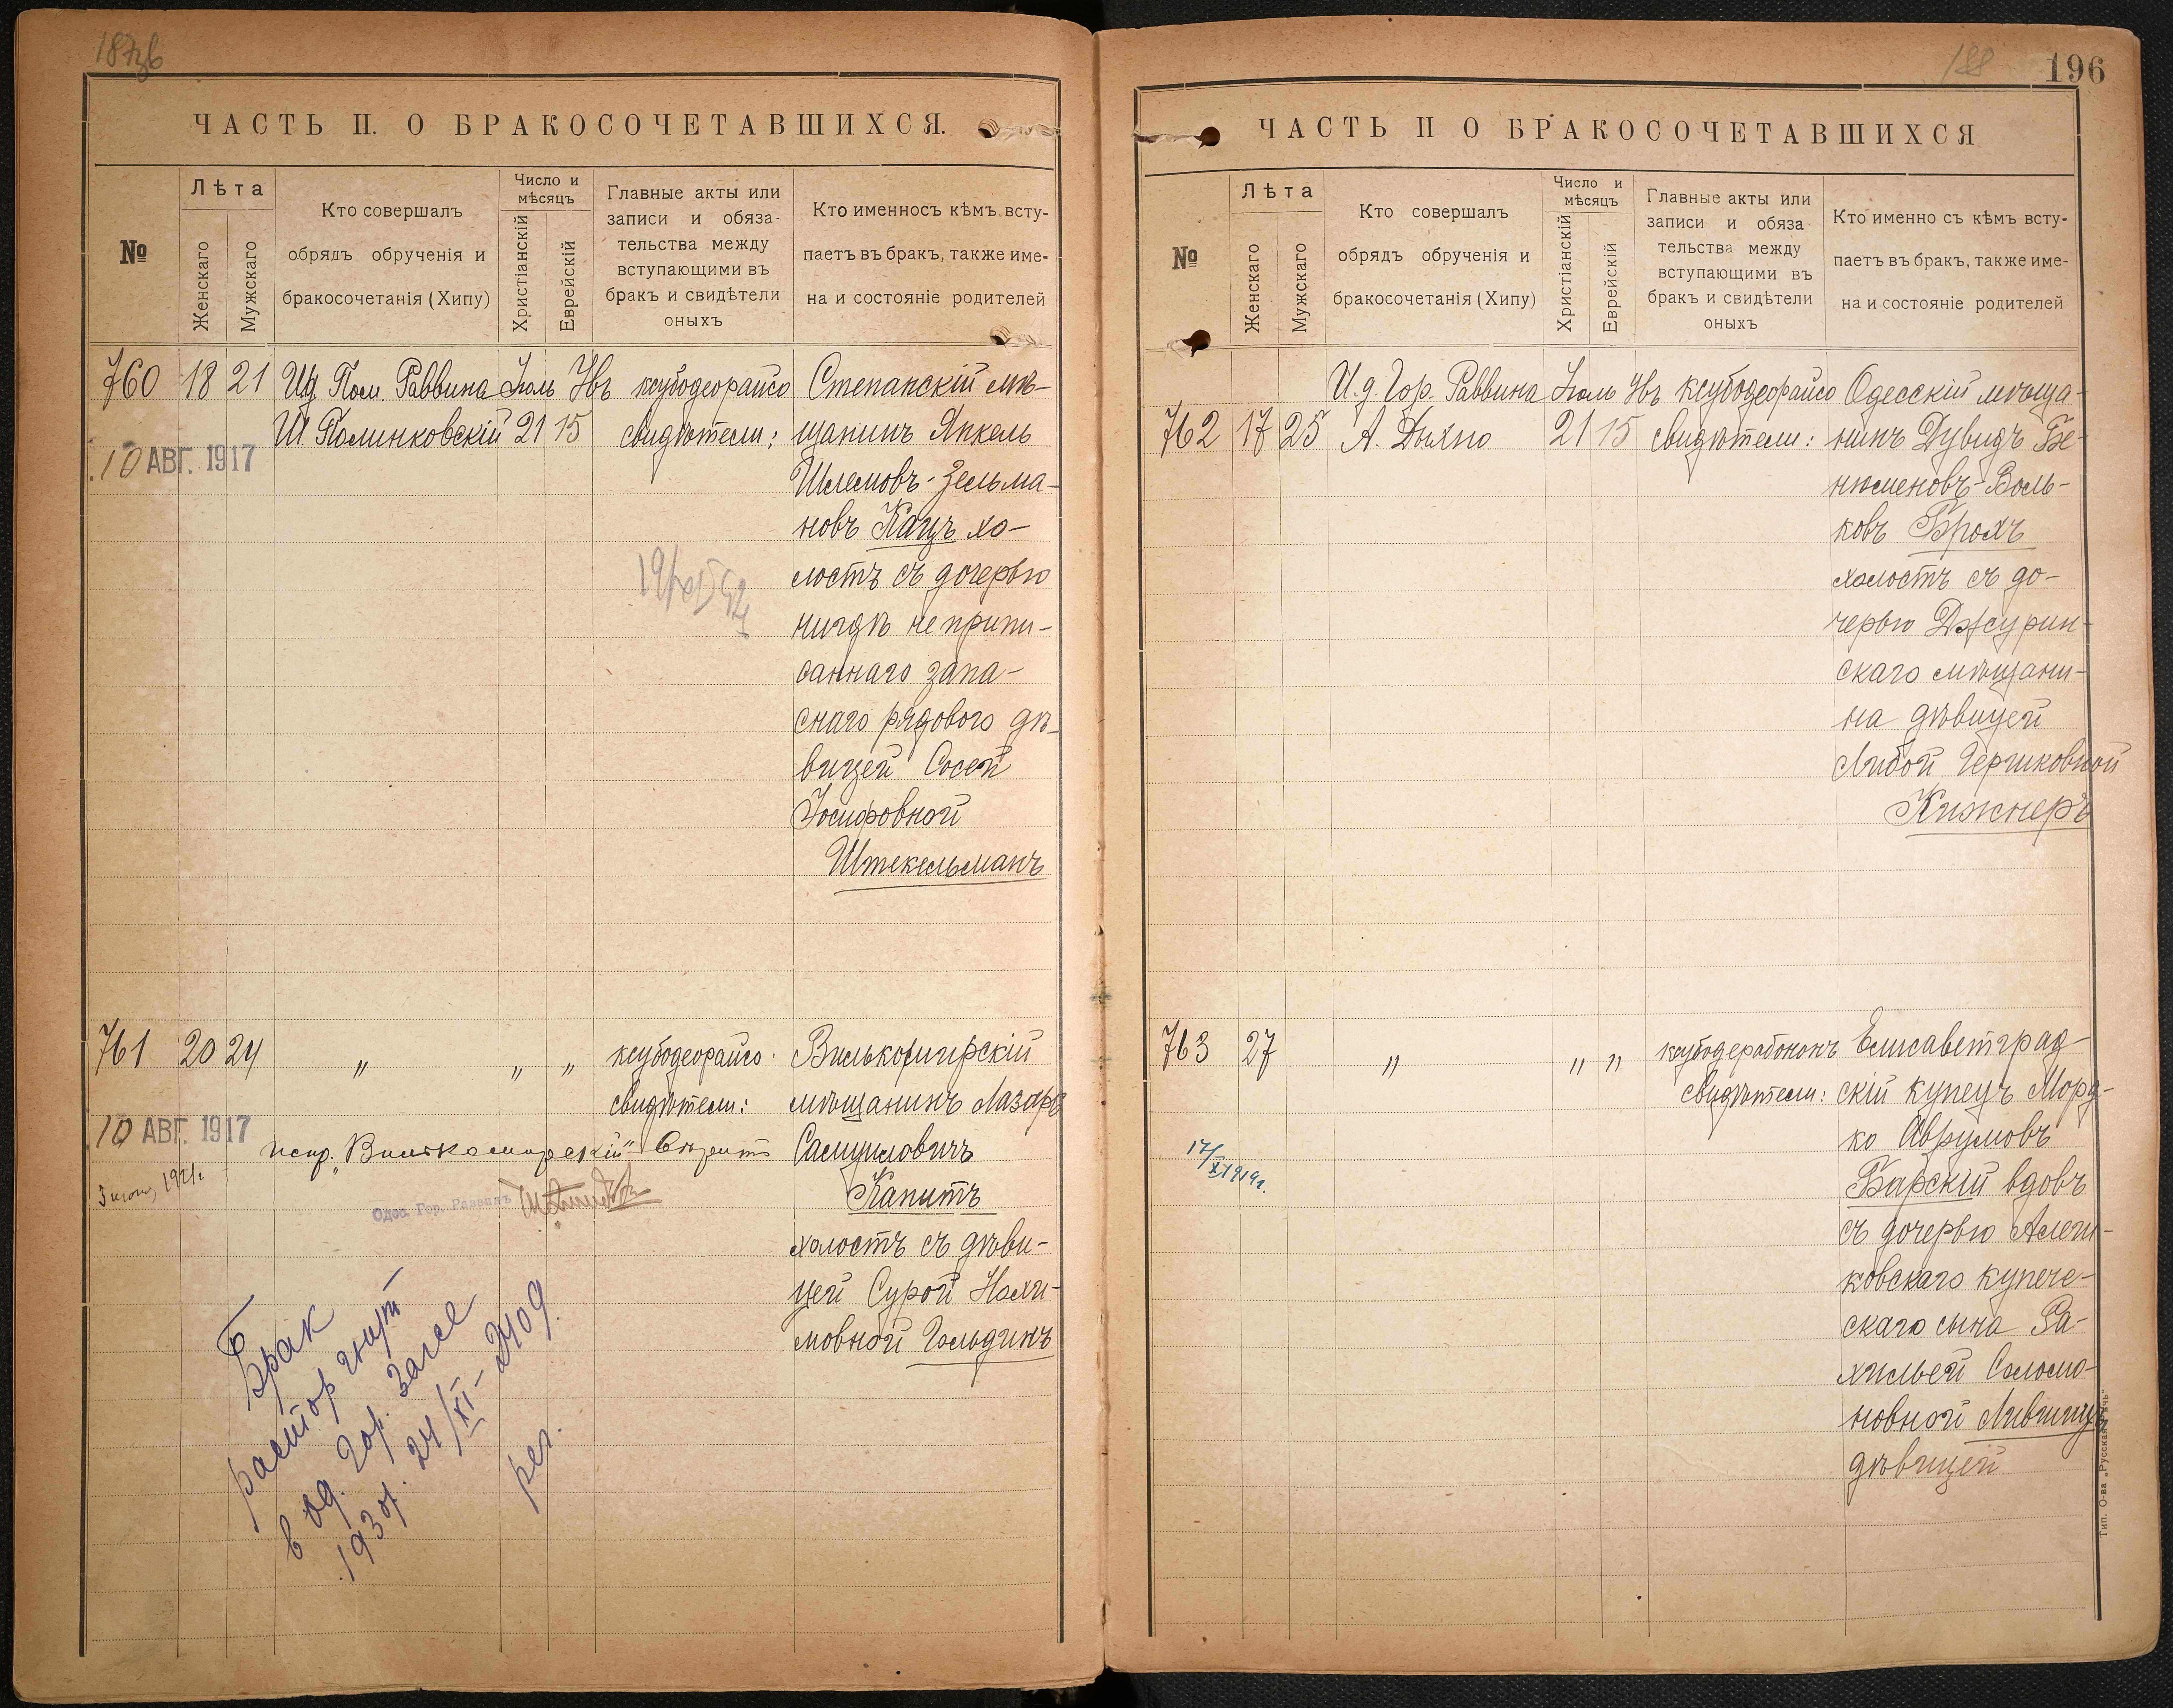 ЧАСТЬ II. О БРАКОСОЧЕТАВШИХСЯ.
№
Лѣта
Женскаго
Мужскаго
Кто совершалъ
обрядъ обрученія и
бракосочетанія (Хипу)
Число и
мѣсяцъ
Христіанскій
Еврейскій
Главные акты или
записи и обяза-
тельства между
вступающими въ
бракъ и свидѣтели
оныхъ
Кто именносъ кѣмъ всту-
паетъ въ бракъ, также име-
на и состояніе родителей
760 18 21
И.д. Пом. Раввина
Ш Полинковскій
Іюль Ꙗвъ
21 15
ксубодеорайсо
свидѣтели:
Степанскій мѣ-
щанинъ Янкель
Шлемовъ-Зельма-
новъ Кацъ хо-
лостъ съ дочерью
нигдѣ не припи-
саннаго запа-
снаго рядового дѣ-
вицей Сосей
Іосифовной
Штекельманъ
10 АВГ. 1917
761 20 24
„
„ „
ксубодеорайсо.
свидѣтели:
Вилькомирскій
мѣщанинъ Лазарь
Самуиловичъ
Капитъ
холостъ съ дѣви-
цей Сурой Нахи-
мовной Гольдинъ
10 АВГ. 1917
испр. „Вилькомирскій"
Одес. Гор. Раввинъ
Брак
расторгнут
в од. Гор. Загсе
193 г. 24/XI-
рег.
196
ЧАСТЬ II О БРАКОСОЧЕТАВШИХСЯ
№
Лѣта
Женскаго
Мужскаго
Кто совершалъ
обрядъ обрученія и
бракосочетанія (Хипу)
Число и
мѣсяцъ
Христіанскій
Еврейскій
Главные акты или
записи и обяза
тельства между
вступающими въ
бракъ и свидѣтели
оныхъ
Кто именно съ кѣмъ всту-
паетъ въ бракъ, также име-
на и состояніе родителей
762 17 25
И.д. Гор. Раввина
А. Дыхно
Іюль
21 15
ксубодеорайсо
свидѣтели:
Одесскій мѣща-
нинъ Дувидъ Бе-
нюменовъ-Воль-
ковъ Брохъ
холостъ съ до-
черью Джурин-
скаго мѣщани-
на дѣвицей
Либой Гершковной
Кижнеръ
763 27
„
„ „
свидѣтели:
Елисаветград-
скій купецъ Морд-
ко Аврумовъ
Барскій вдовъ
съ дочерью Алеш-
ковскаго купече-
скаго сына Ра-
хилью Соломо-
новной Лившицъ
дѣвицей
17/XI 1919г.
Тип. О-ва „Русская рѣчь"